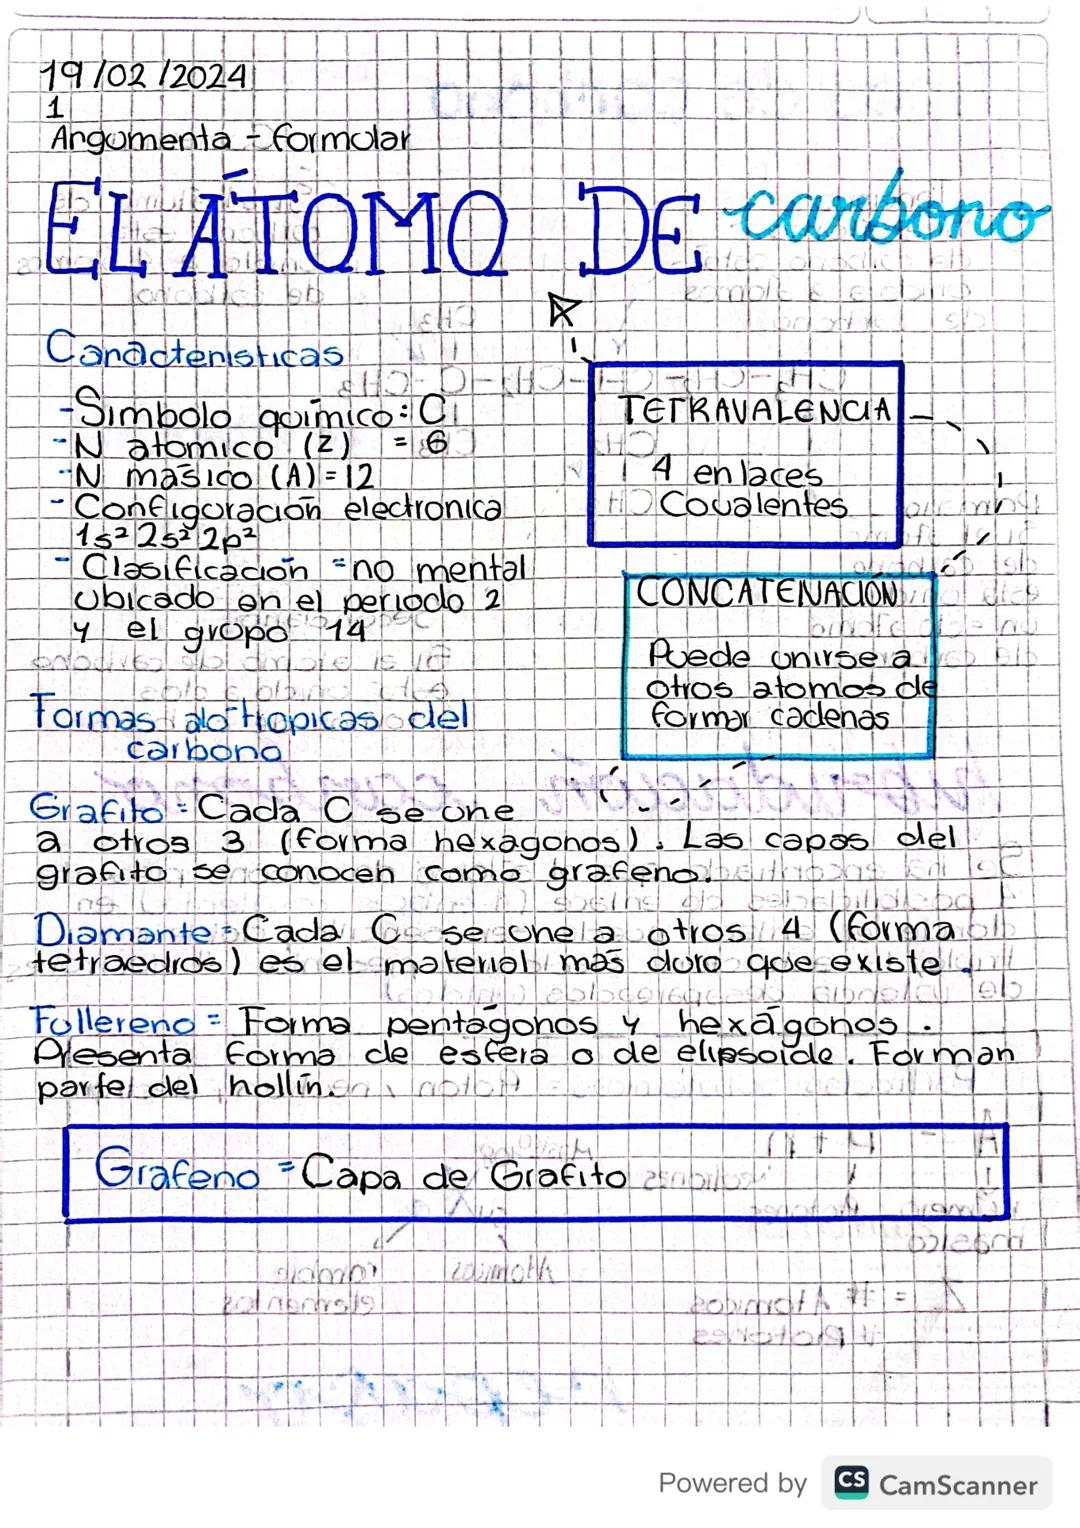 19/02/2024
1
Argumenta - formular
EL ÁTOMO DE carbono
Caracteristicas
-Simbolo químico: C
-N atomico (Z) = 6
-N masico (A) = 12
- Configuración electronica
1s² 2s² 2p²
- Clasificación = no mental
Ubicado en el periodo 2
y el grupo 14
TETRAVALENCIA
4 enlaces
Covalentes
CONCATENACIÓN
Puede unirse a
otros atomos de
formar cadenas
Formas alotropicas del
carbono
Grafito = Cada C se une
a otros 3 (forma hexagonos). Las capas del
grafito se conocen como grafeno.
Diamante = Cada C se une a otros 4 (forma
tetraedros) es el material más duro que existe.
Fullereno = Forma pentágonos y hexágonos.
Presenta forma de esfera o de elipsoide. Forman
parte del hollín.
Grafeno = Capa de Grafito
Powered by CS CamScanner